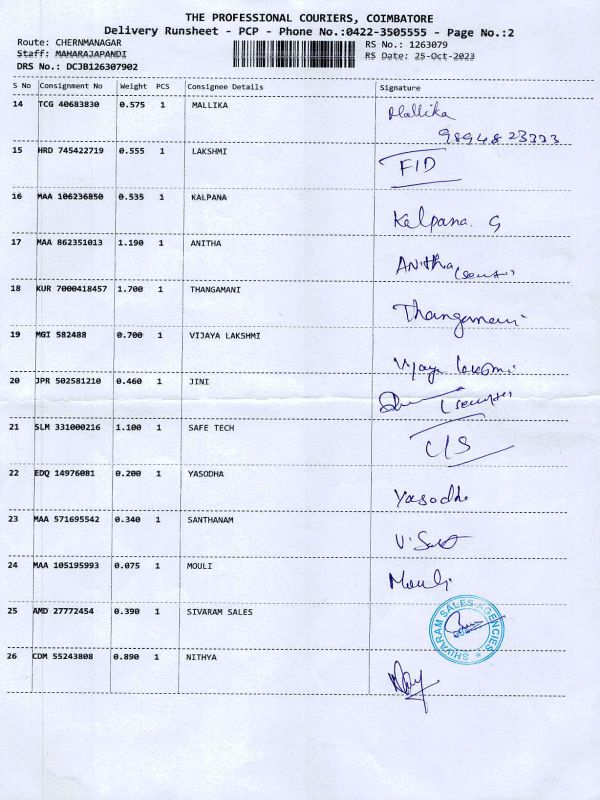 THE PROFESSIONAL COURIERS, COIMBATORE
Delivery Runsheet - PCP - Phone No.:0422-3505555 - Page No.:2
Route: CHERNMANAGAR RS No.: 1263079
Staff: MAHARAJAPANDI RS Date: 25-Oct-2023
DRS No.: DCJB126307902
S No Consignment No Weight PCS Consignee Details Signature
14 TCG 40683830 0.575 1 MALLIKA Mallika
98948 23333
15 HRD 745422719 0.555 1 LAKSHMI FID
16 MAA 106236850 0.535 1 KALPANA Kalpana. G
17 MAA 862351013 1.190 1 ANITHA ANitha
18 KUR 7000418457 1.700 1 THANGAMANI Thangamani
19 MGI 582488 0.700 1 VIJAYA LAKSHMI Vijaya laksmi
20 JPR 502581210 0.460 1 JINI
21 SLM 331000216 1.100 1 SAFE TECH C/S
22 EDQ 14976081 0.200 1 YASODHA Yasodha
23 MAA 571695542 0.340 1 SANTHANAM
24 MAA 105195993 0.075 1 MOULI Mouli
25 AMD 27772454 0.390 1 SIVARAM SALES SHIVARAM SALES AGENCIES
26 CDM 55243808 0.890 1 NITHYA